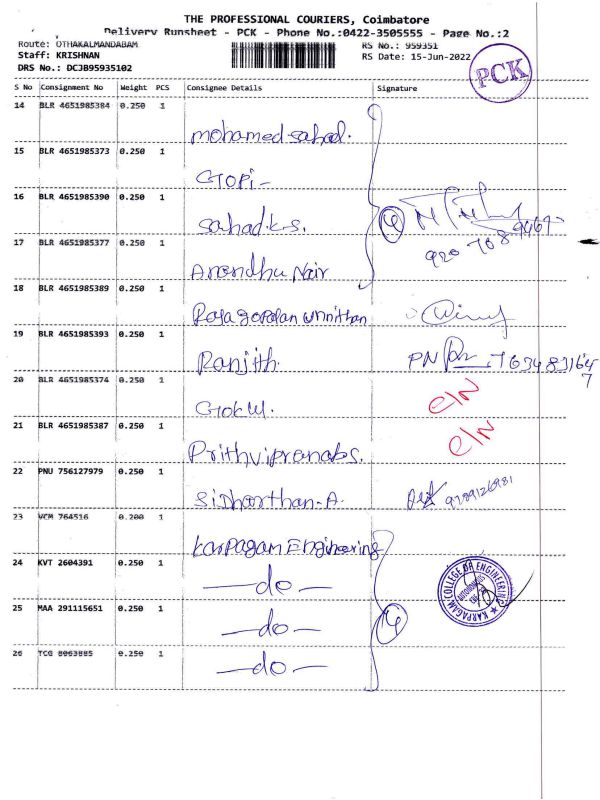 THE PROFESSIONAL COURIERS, Coimbatore
Delivery Runsheet - PCK - Phone No.:0422-3505555 - Page No.:2
Route: OTHAKALMANDABAM
RS No: 959351
Staff: KRISHNAN
RS Date: 15-Jun-2022
DRS No.: DCJB95935102
PCK
S No Consignment No Weight PCS Consignee Details Signature
14 BLR 4651985384 0.250 1
mohamed sahad.
15 BLR 4651985373 0.250 1
Gopi-
16 BLR 4651985390 0.250 1
sahad.k.s.
4
17 BLR 4651985377 0.250 1
Anandhu Nair
18 BLR 4651985389 0.250 1
Rajagopalan unnithan
19 BLR 4651985393 0.250 1
Ranjith. PN 763483164
7
20 BLR 4651985374 0.250 1
Gokul. C/N
21 BLR 4651985387 0.250 1
C/N
Prithvipranabs.
22 PNU 756127979 0.250 1
Sidharthan-A.
23 VCM 764516 0.200 1
Karpagam Engineering
24 KVT 2604391 0.250 1
—do—
KARPAGAM COLLEGE OF ENGINEERING
AUTONOMOUS
25 MAA 291115651 0.250 1
—do— 4
26 TCG 8063885 0.250 1
—do—